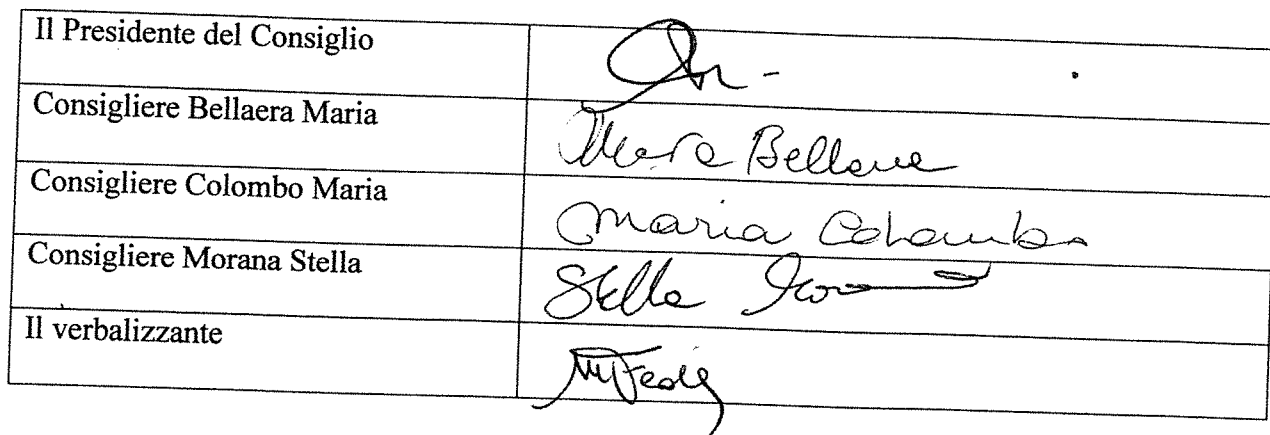 Il Presidente del Consiglio
Consigliere Bellaera Maria
Maria Bellaera
Consigliere Colombo Maria
Maria Colombo
Consigliere Morana Stella
Stella
Il verbalizzante